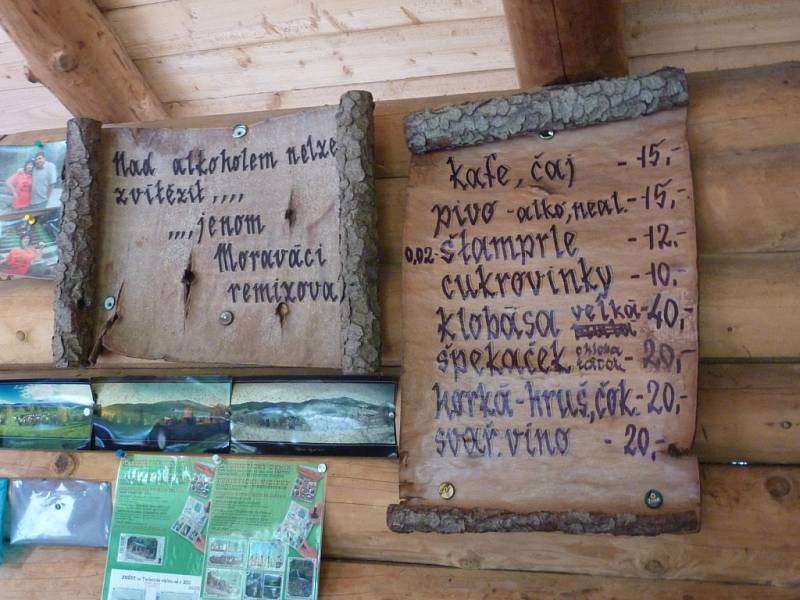 Nad alkoholem nelze
zvítězit,,,,
,,,,jenom
Moraváci
remizova
kafe, čaj - 15,-
pivo - alko, neal. - 15,-
0,02 - štamprle - 12.-
cukrovinky - 10.-
klobása velká - 40,-
špekáček chleba - 20,-
horká - hruš, čok. - 20,-
svař. víno - 20,-